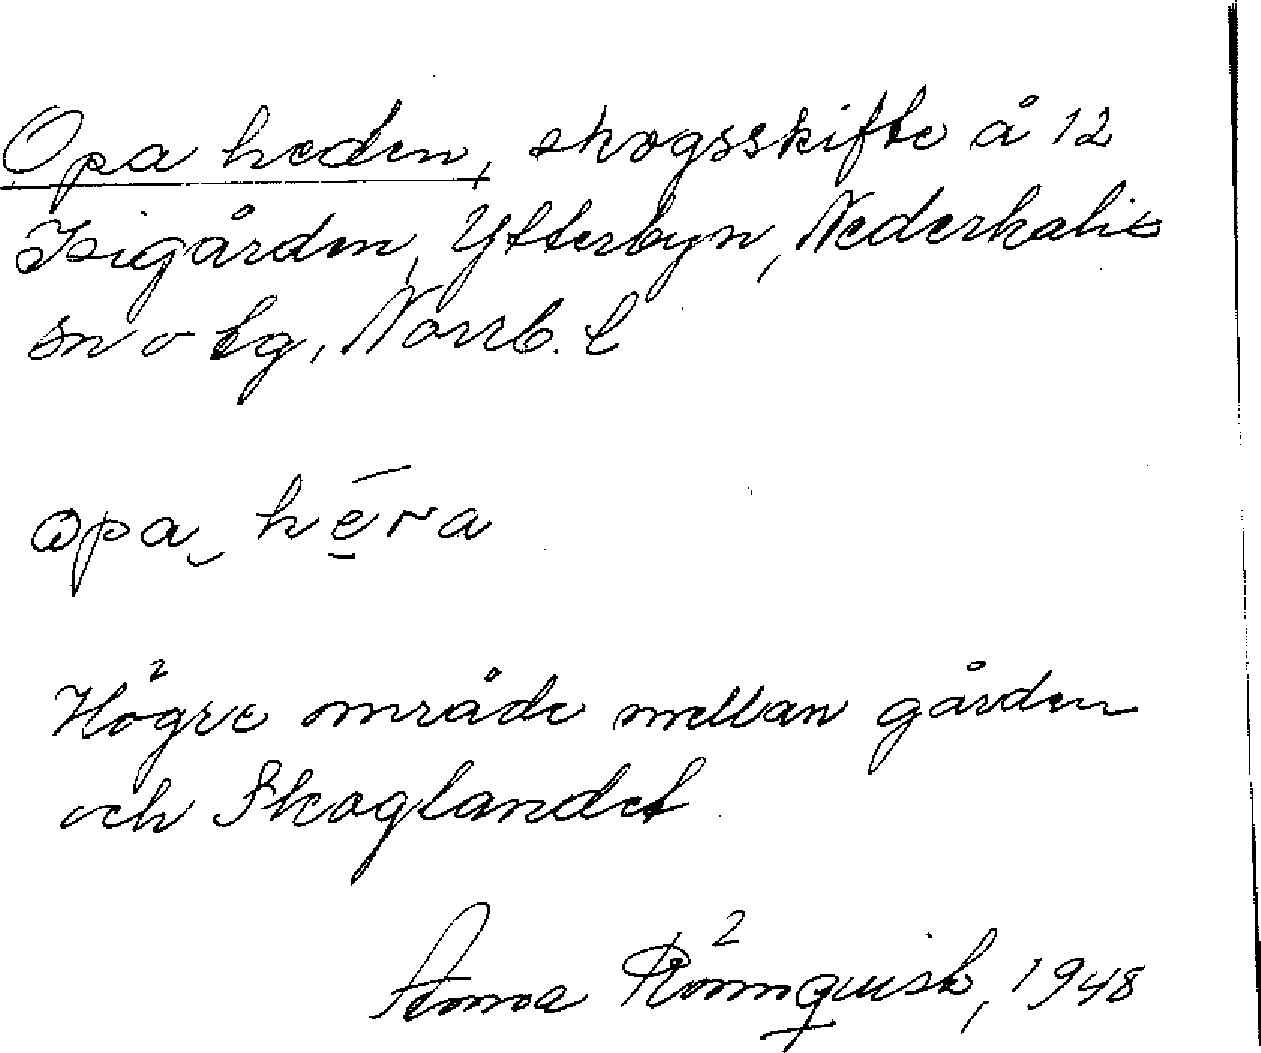 Opa heden, skogsskifte å 12
Isigården, Ytterbyn, Nederkalix
sn o tg, Norrb. l
opa‿ hēra
Högre område mellan gården
och Skoglandet
Anna Rönnquist, 1948